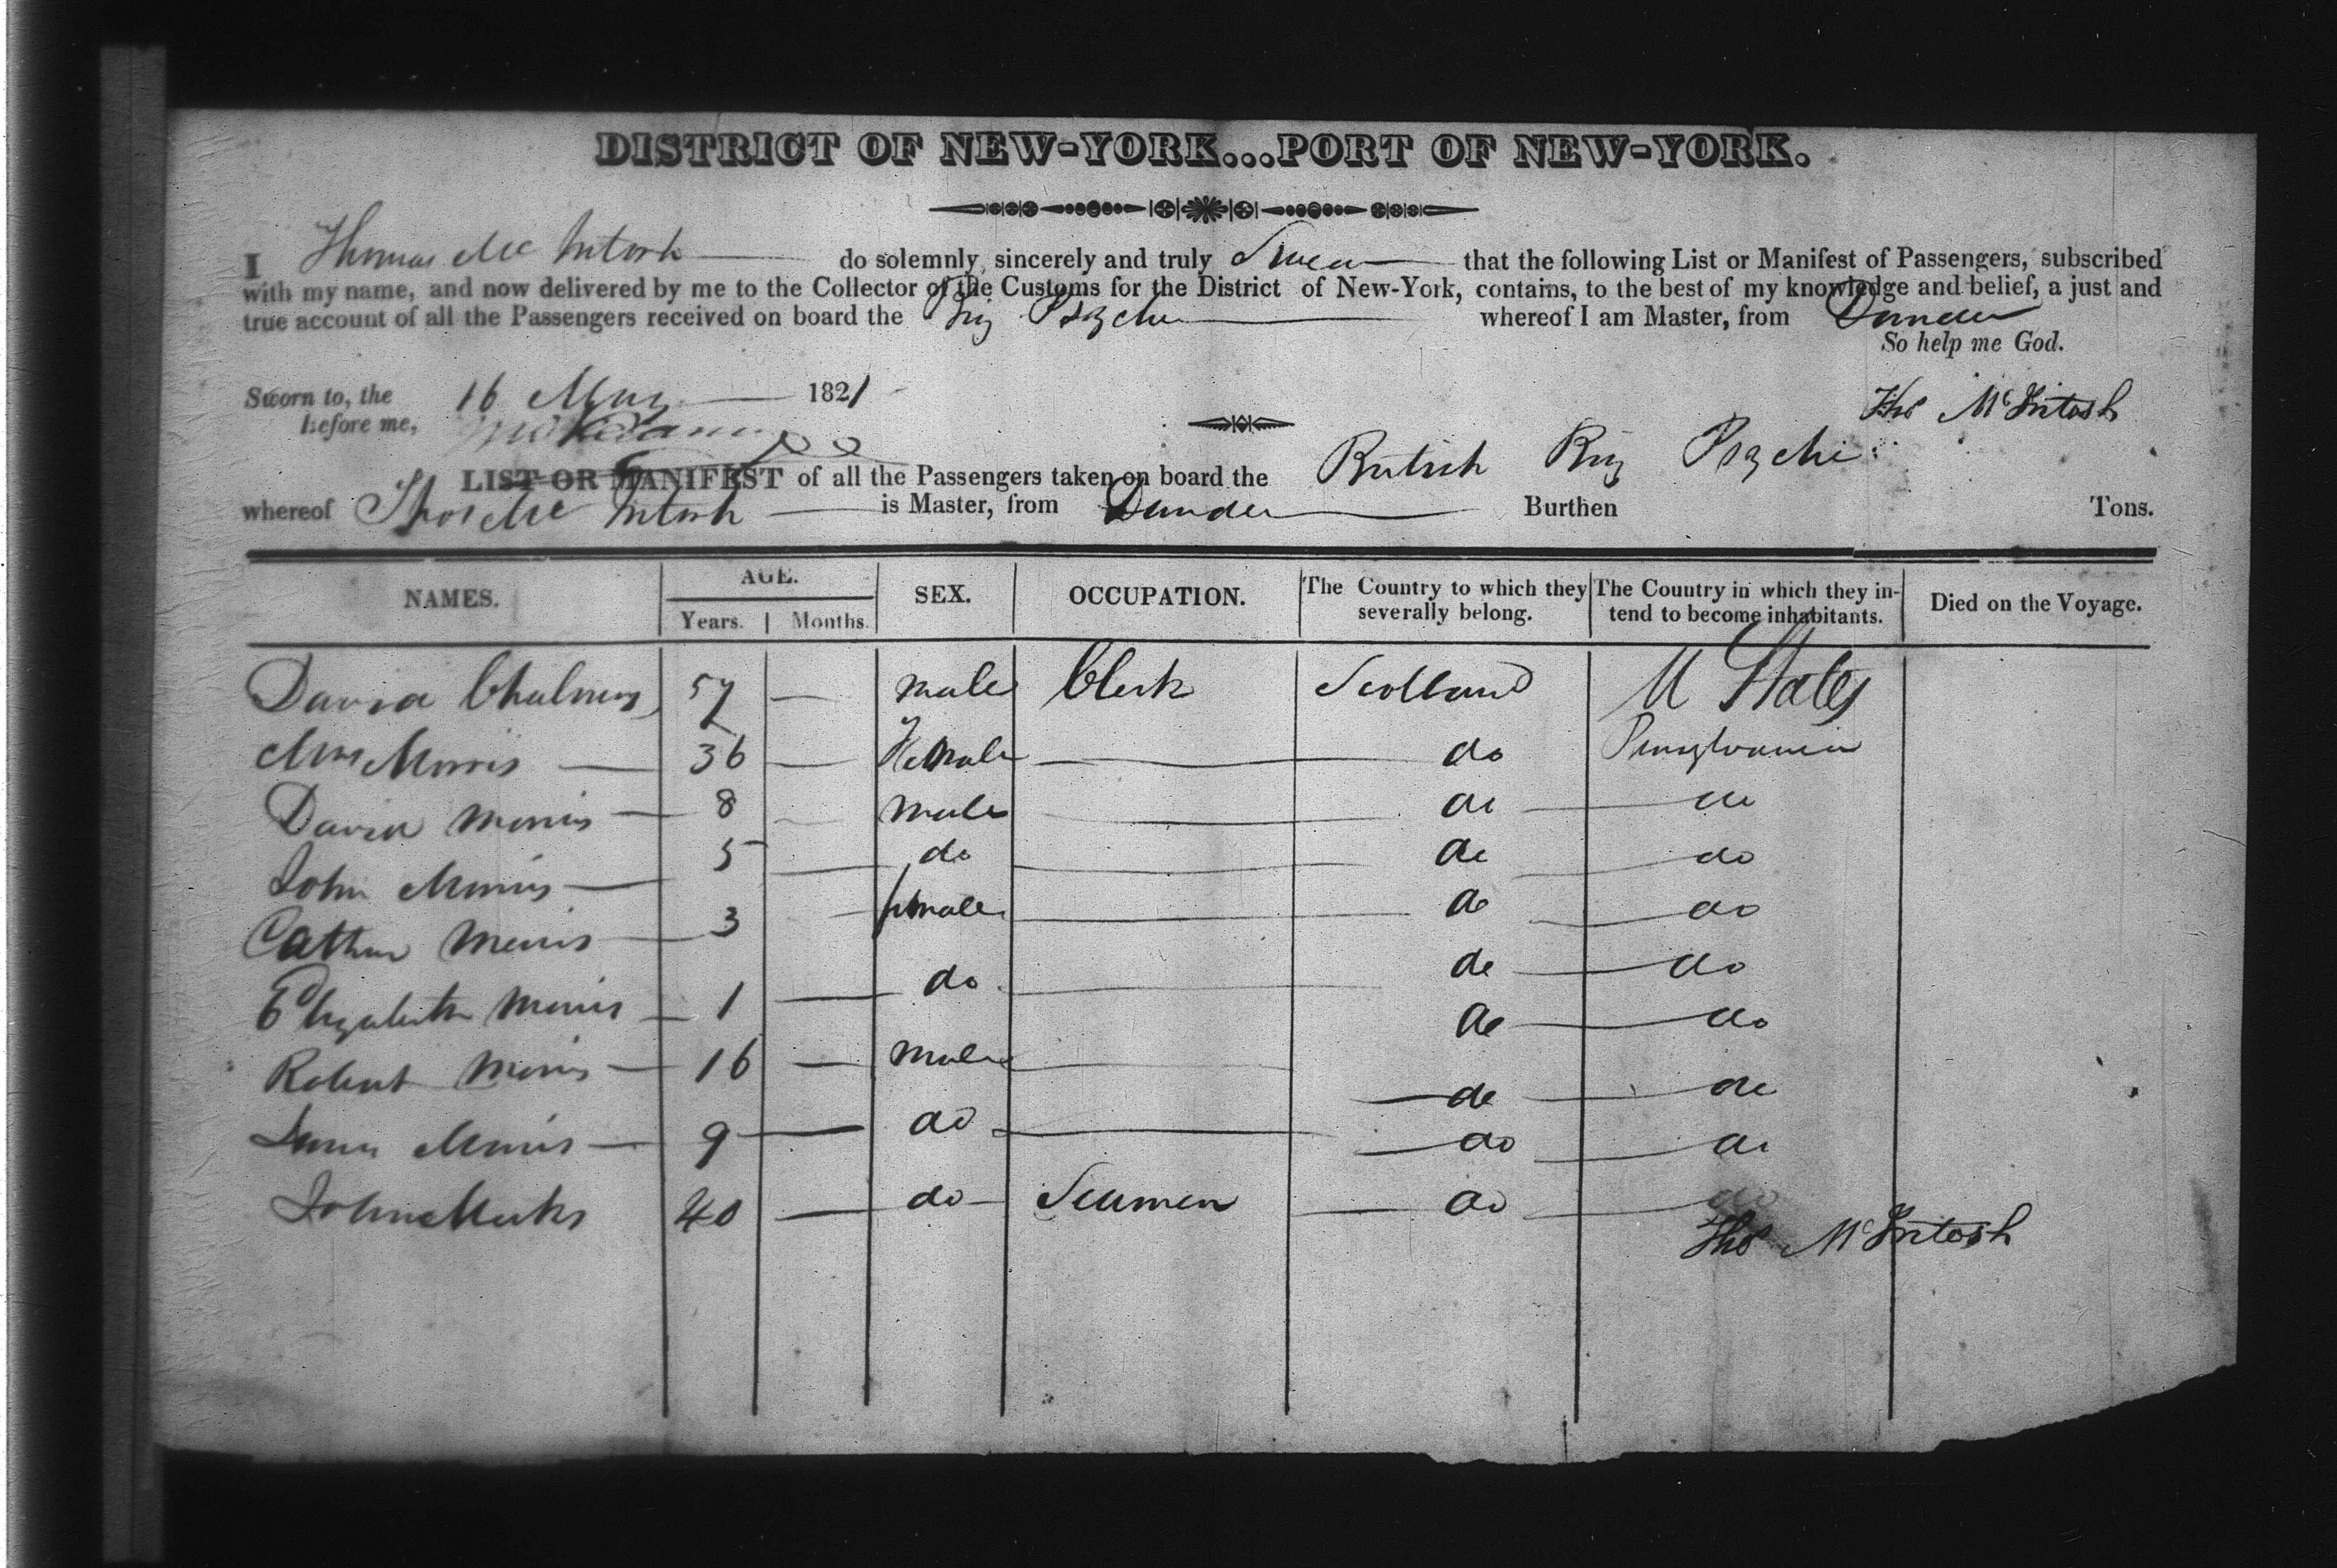 DISTRICT OF NEW-YORK...PORT OF NEW-YORK.
I Thomas Mc Intosh do solemnly, sincerely and truly Swear that the following List or Manifest of Passengers, subscribed
with my name, and now delivered by me to the Collector of the Customs for the District of New-York, contains, to the best of my knowledge and belief, a just and
true account of all the Passengers received on board the Brig Psyche whereof I am Master, from Dundee
So help me God.
Sworn to, the 16 May 1821
before me,
Thos McIntosh
LIST OR MANIFEST of all the Passengers taken on board the British Brig Psyche
whereof Thos Mc Intosh is Master, from Dundee Burthen Tons.
NAMES. AGE. SEX. OCCUPATION. The Country to which they severally belong. The Country in which they intend to become inhabitants. Died on the Voyage.
Years. Months.
David Chalmers 57 — male Clerk Scotland U States
Mrs Morris — 36 — Female — do Pensylvania
David Morris — 8 — male — do — do
John Morris — 5 — do — do — do
Cathrn Morris — 3 — female — do — do
Elizabeth Morris — 1 — do — do — do
Robert Morris — 16 — male — do — do
James Morris — 9 — do — do — do
John Meeks 40 — do — Seaman — do — do
do do
Thos McIntosh